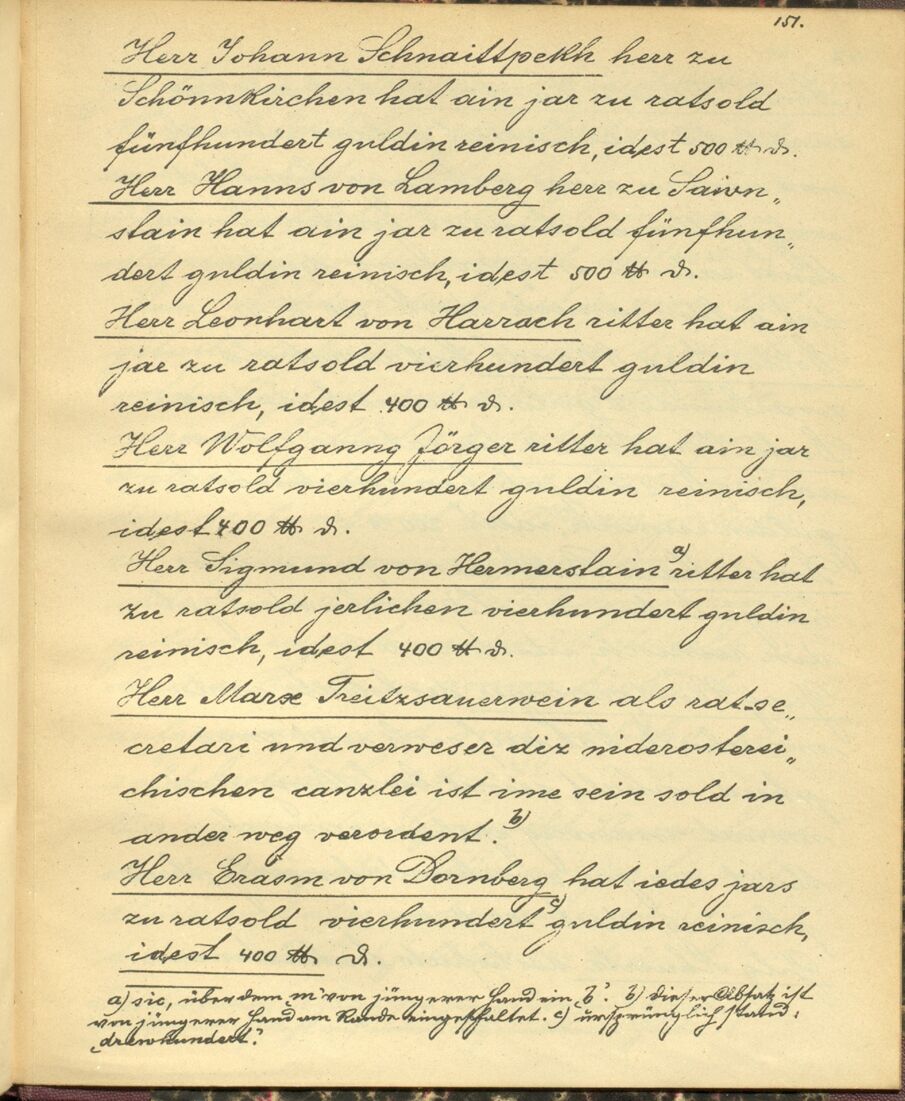 151.
Herr Johann Schnaittpekh herr zu
Schönnkirchen hat ain jar zu ratsold
fünfhundert guldin reinisch, idest 500 ℔ ₰.
Herr Hanns von Lamberg herr zu Sawn„
stain hat ain jar zu ratsold fünfhun„
dert guldin reinisch, idest 500 ℔ ₰.
Herr Leonhart von Harrach ritter hat ain
jar zu ratsold vierhundert guldin
reinisch, idest 400 ℔ ₰.
Herr Wolfganng Jörger ritter hat ain jar
zu ratsold vierhundert guldin reinisch,
idest 400 ℔ ₰.
Herr Sigmund von Hermerstain a) ritter hat
zu ratsold jerlichen vierhundert guldin
reinisch, idest 400 ℔ ₰.
Herr Marx Treitzsauerwein als rat-se„
cretari und verweser diz niderosterei„
chischen canzlei ist ime sein sold in
ander weg verordent. b)
Herr Erasm von Dornberg hat iedes jars
zu ratsold vierhundert c) guldin reinisch,
idest 400 ℔ ₰.
a) sic, über dem „m" von jüngerer Hand ein „b". b) dieser Absatz ist
von jüngerer Hand am Rande eingeschaltet. c) ursprünglich stand:
„drewhundert".